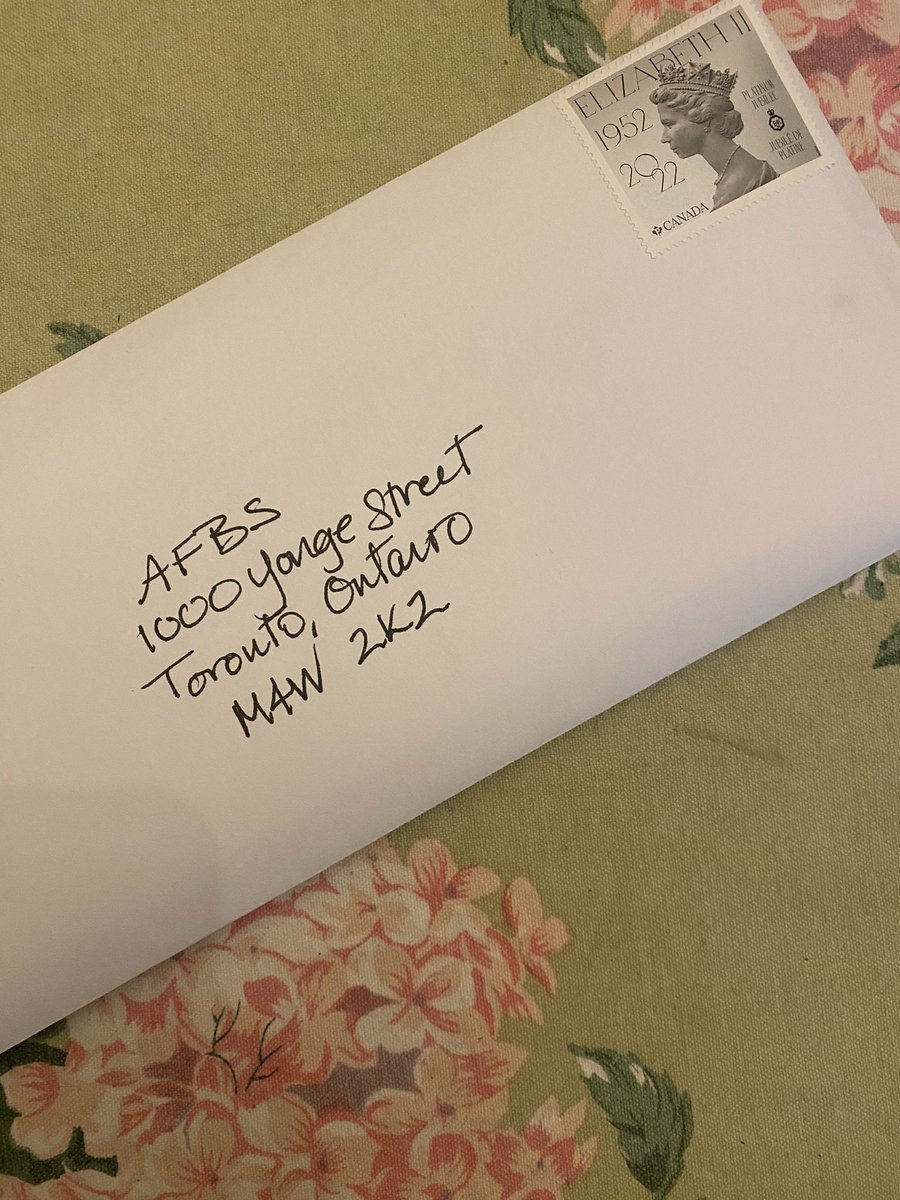 ELIZABETH II
1952
2022
PLATINUM
JUBILEE
JUBILÉ DE
PLATINE
P CANADA
AFBS
1000 Yonge Street
Toronto, Ontario
M4W 2K2